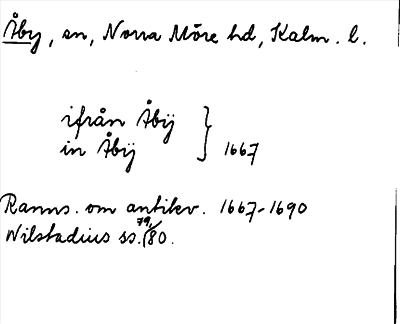 Åby, sn, Norra Möre hd, Kalm. l.
ifrån Åbÿ } 1667
in Åbÿ
Ranns. om antikv. 1667-1690
Wilstadius ss. 79, 80.